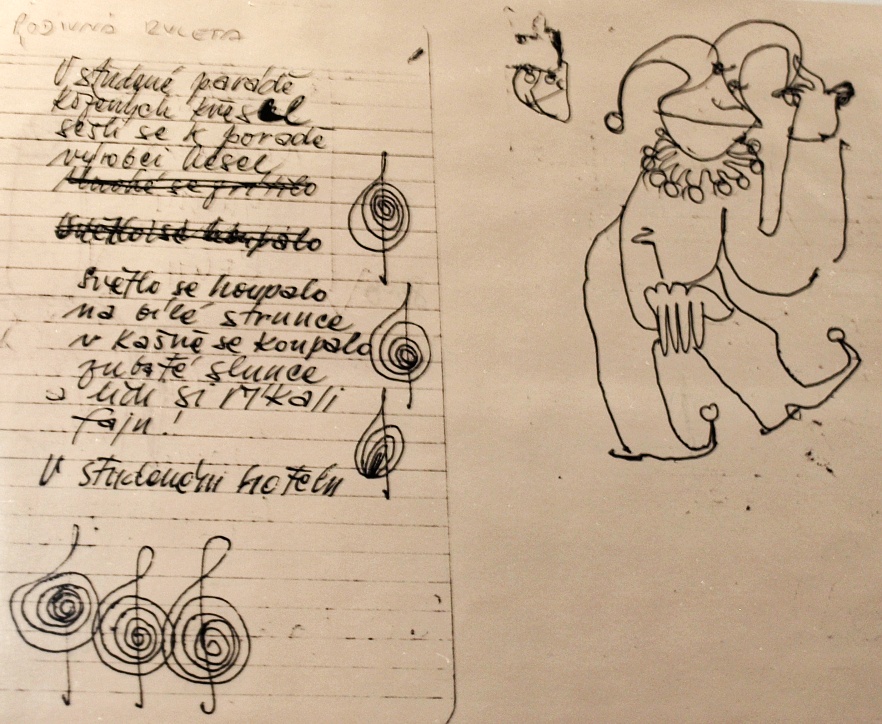 PODIVNÁ RULETA
V studené parádě
kožených křesel
sešli se k poradě
výrobci hesel
Mnohé se příčilo
Světlo se houpalo
Světlo se houpalo
na bílé strunce
v kašně se koupalo
zubaté slunce
a lidi si říkali
fajn!
V studeném hotelu